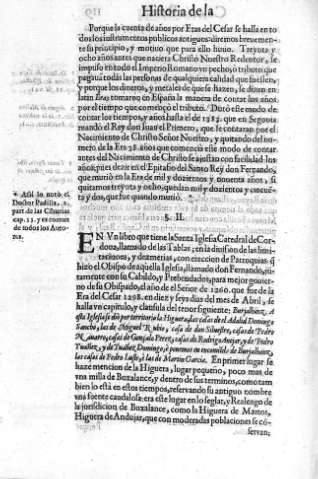 Historia de la
Porque la cuenta de años por Eras del Cesar se halla en to
dos los instrumentos publicos antiguos diremos breuemen-
te su principio, y motiuo que para ello huuo. Treynta y
ocho años antes que naciera Christo Nuestro Redentor, se
impuso en todo el Imperio Romano vn pecho, ò tributo que
pagauã todas las personas de qualquiera calidad que fuessen,
y porque los dineros, y metales de que se hazen, se dizen en
latin Era, tomaron en España la manera de contar los años
por el tiempo que començò el tributo. Durò este modo de
contar los tiempos, y años hasta el de 1383. que en Segouia
mandò el Rey don Iuan el Primero, que se contaran por el
Nacimiento de Christo Señor Nuestro, y quitando del nu-
mero de la Era 38. años que començò este modo de contar
antes del Nacimiento de Christo se ajustan con facilidad los
años; pues dezir en el Epitafio del Santo Rey don Fernando,
que muriò en la Era de mil y dozientos y nouenta años, si
quitamos treynta y ocho, quedan mil y dozientos y cincuẽ-
ta y dos, que fue quando muriò.
* Assi lo notò el
Doctor Padilla, 2.
part. de las
cap. 11. y es comun
de todos los Auto-
res.
§. II.
EN Vn libro que tiene la Santa Iglesia Catedral de Cor-
doua, llamado de las Tablas, en la diuision de las limi-
taciones, y dezmerias, con ereccion de Parroquias q̃
hizo el Obispo de aquella Iglesia, llamado don Fernando, jun-
tamente con su Cabildo, y Prebendados, para mejor gouier-
no de su Obispado, al año de el Señor de 1260. que fue de la
Era del Cesar 1298. en diez y seys dias del mes de Abril, se
halla vn capitulo, y clausula del tenor siguiente; Burjalhanz, A
esta Iglesia se diò por territorio la Higuera, las casas de el Adalid Domingo
Sancho, las de Miguel Rubio, casa de don Siluestre, casas de Pedro
Nauarro, casas de Gonçalo Perez, casas de Rodrigo Anejar, y de Pedro
Tuañez, y de Tuañez Domingo, è ponemos en encimildo de Burjalhanz,
las casas de Pedro Luste, è las de Martin Garcia. En primer lugar se
haze mencion de la Higuera, lugar pequeño, poco mas de
vna milla de Buxalance, y dentro de sus terminos, como tam
bien lo està en estos tiempos, reseruando su antiguo nombre
vna fuente caudalosa: era este lugar en lo seglar, y Realengo de
la jurisdicion de Buxalance, como la Higuera de Martos,
Higuera de Andujar, que con moderadas poblaciones se cõ-
seruan;